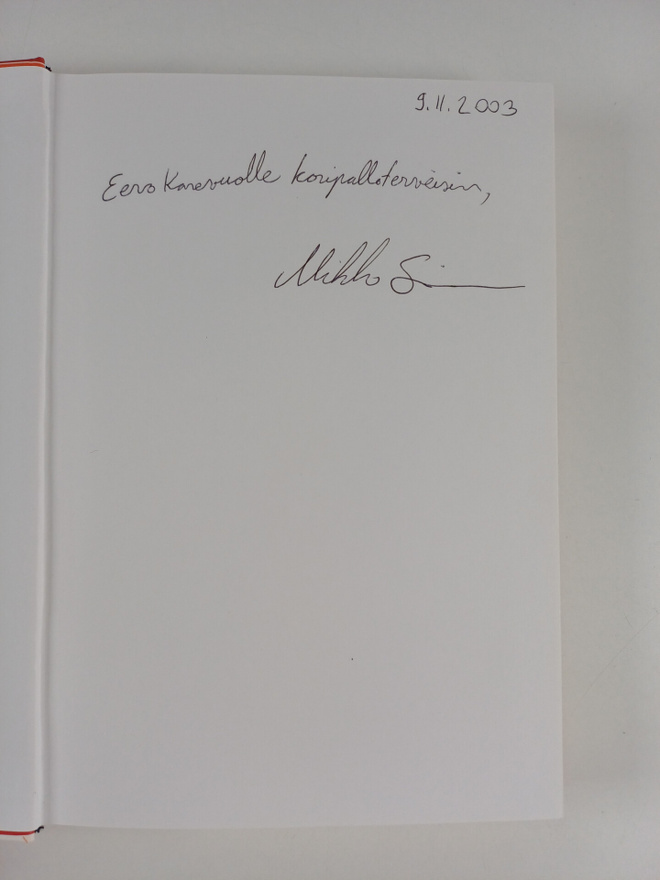 9.11.2003
Eero Karevuolle koripalloterveisin,
Mikko